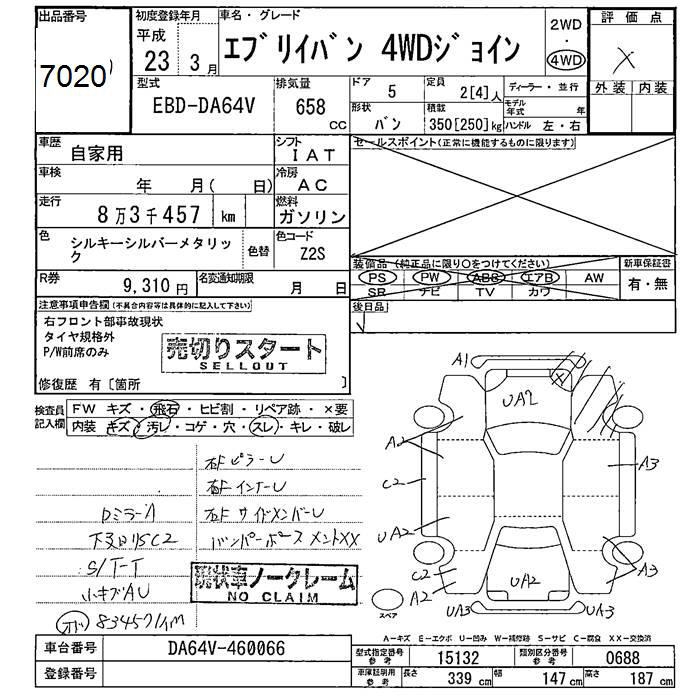 出品番号
7020
初度登録年月
平成
23 年 3 月
車名・グレード
エブリイバン 4WDジョイン
2WD
・
4WD
評価点
×
外装 内装
型式
EBD-DA64V
排気量
658
CC
ドア 5
定員 2[4]人
ディーラー・並行
形状 バン
積載 350[250]kg
モデル年式 年
ハンドル 左・右
車歴
自家用
シフト
IAT
セールスポイント(正常に機能するものに限ります)
車検
年 月( 日)
冷房
AC
走行
8万3千457 km
燃料
ガソリン
色
シルキーシルバーメタリック
色替
色コード
Z2S
装備品(純正品に限り〇をつけてください)
PS PW ABS エアB AW
SR ナビ TV カワ
新車保証書
有・無
R券
9,310円
名変通知期限
月 日
後日品
注意事項申告欄(不具合内容等は具体的に記入して下さい)
右フロント部事故現状
タイヤ規格外
P/W前席のみ
売切りスタート
SELLOUT
修復歴 有〔箇所 〕
検査員
記入欄
FW キズ・飛石・ヒビ割・リペア跡・×要
内装 キズ・汚レ・コゲ・穴・スレ・キレ・破レ
右FピラーU
右FインナーU
右FサイドメンバーU
バンパーホースメントXX
Dミラー A
下廻りSC2
S/T-T
小キズAU
現状車ノークレーム
NO CLAIM
83457km
A1
UA2
A2
C2
A3
UA2
C2
A2
UA2
A3
UA3
UA3
スペア
A-キズ E-エクボ U-凹み W-補修跡 S-サビ C-腐食 XX-交換済
車台番号
DA64V-460066
登録番号
型式指定番号
参考
15132
類別区分番号
参考
0688
車庫証明用
参考
長さ 339 cm
幅 147 cm
高さ 187 cm